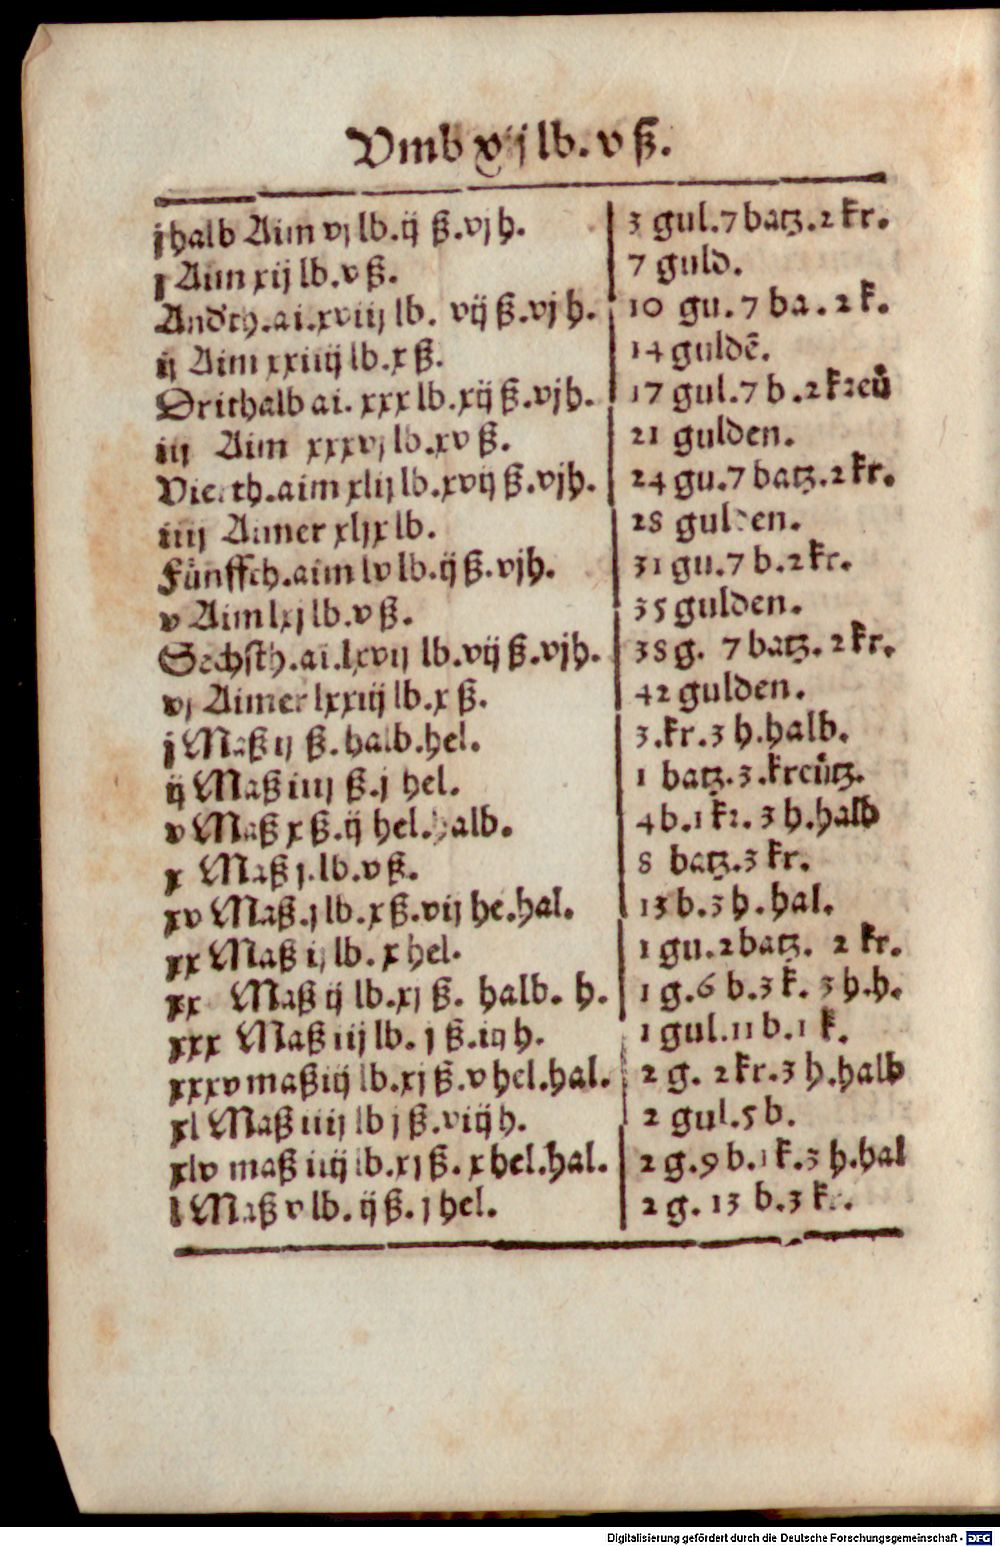 Vmb xij lb. v ß.
j halb Aim vj lb. ij ß. vj h. 3 gul. 7 batz. 2 kr.
j Aim xij lb. v ß. 7 guld.
Andth. ai. xviij lb. vij ß. vj h. 10 gu. 7 ba. 2 k.
ij Aim xxiiij lb. x ß. 14 guldē.
Drithalb ai. xxx lb. xij ß. vjh. 17 gul. 7 b. 2 kreů
iij Aim xxxvj lb. xv ß. 21 gulden.
Vierth. aim xlij lb. xvij ß. vjh. 24 gu. 7 batz. 2 kr.
iiij Aimer xljx lb. 28 gulden.
Fünffth. aim lv lb. ij ß. vjh. 31 gu. 7 b. 2 kr.
v Aim lxj lb. v ß. 35 gulden.
Sechsth. ai. lxvij lb. vij ß. vjh. 38 g. 7 batz. 2 kr.
vj Aimer lxxiij lb. x ß. 42 gulden.
j Maß ij ß. halb. hel. 3. kr. 3 h. halb.
ij Maß iiij ß. j hel. 1 batz. 3. kreütz.
v Maß x ß. ij hel. halb. 4 b. 1 kr. 3 h. halb
x Maß j. lb. v ß. 8 batz. 3 kr.
xv Maß. j lb. x ß. vij he. hal. 13 b. 3 h. hal.
xx Maß ij lb. x hel. 1 gu. 2 batz. 2 kr.
xx Maß ij lb. xj ß. halb. h. 1 g. 6 b. 3 k. 3 h. h.
xxx Maß iij lb. j ß. iij h. 1 gul. 11 b. 1 k.
xxxv maß iij lb. xj ß. v hel. hal. 2 g. 2 kr. 3 h. halb
xl Maß iiij lb j ß. viij h. 2 gul. 5 b.
xlv maß iiij lb. xj ß. x hel. hal. 2 g. 9 b. 1 k. 3 h. hal
l Maß v lb. ij ß. j hel. 2 g. 13 b. 3 kr.
Digitalisierung gefördert durch die Deutsche Forschungsgemeinschaft - DFG